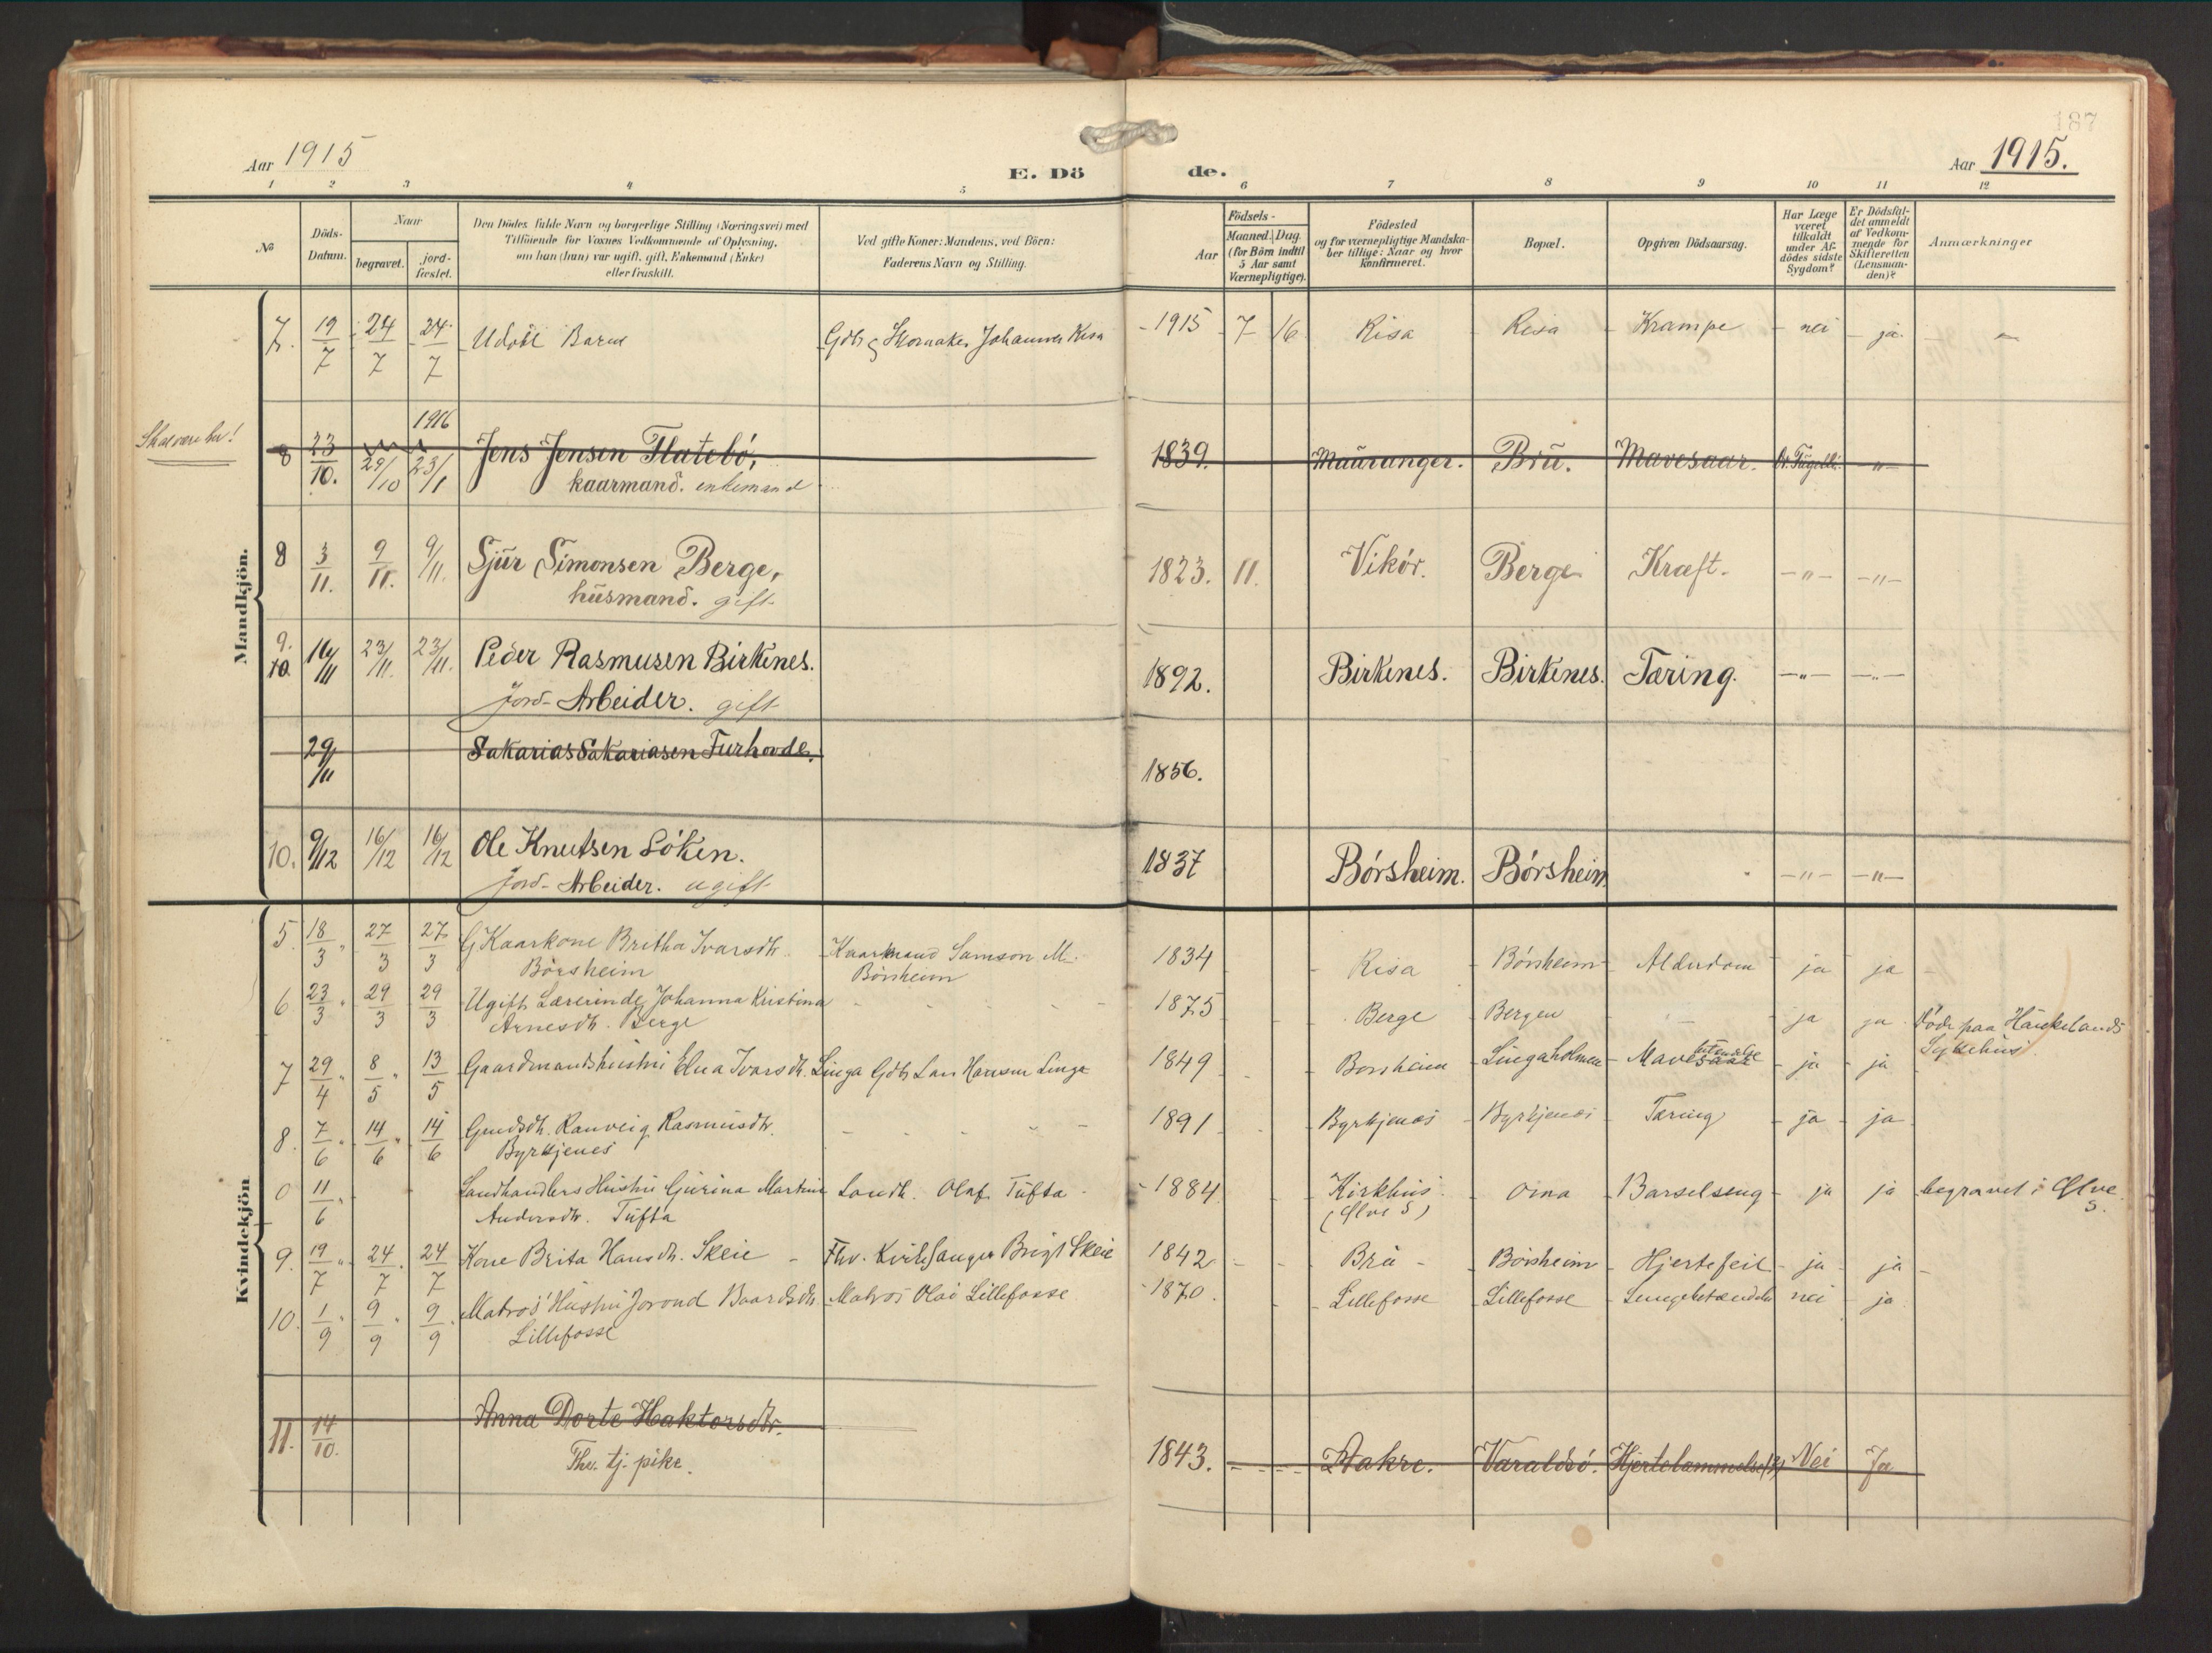 187
Aar 1915
E. Döde.
Aar 1915.
1 2 3 4 5 6 7 8 9 10 11 12
№
Döds-Datum.
Naar
begravet.
jord-fæstet.
Den Dödes fulde Navn og borgerlige Stilling (Næringsvei) med
Tilföiende for Voxnes Vedkommende af Oplysning,
om han (hun) var ugift, gift, Enkemand (Enke)
eller fraskilt.
Ved gifte Koner: Mandens, ved Börn:
Faderens Navn og Stilling.
Födsels-
Aar
Maaned. Dag.
(for Börn indtil
5 Aar samt
Værnepligtige).
Födested
og for værnepligtige Mandska-
ber tillige: Naar og hvor
konfirmeret.
Bopæl.
Opgiven Dödsaarsag.
Har Læge
været
tilkaldt
under Af-
dödes sidste
Sygdom?
Er Dödsfal-
det anmeldt
af Vedkom-
mende for
Skifteretten
(Lensman-
den)?
Anmærkninger
Mandkjön.
7. 19/7 24/7 24/7 Udöbt Barn Gdbr & Skomaker Johannes Risa 1915 7 16 Risa Risa Krampe nei ja
Skal være her!
1916
8 23/10. 29/10 23/1 Jens Jensen Flatebó, 1839. Mauranger. Bru. Mavesaar. Dr. Fügelli. -"-
kaarmand. enkemand
8 3/11. 9/11. 9/11. Sjur Simonsen Berge, 1823. 11. Vikór. Berge Kræft. -"- -"-
husmand. gift
9. 10. 16/11 23/11. 23/11. Peder Rasmusen Birkenes. 1892. Birkenes. Birkenes. Tæring. -"- -"-
Jord-Arbeider. gift
29/11 Sakarias Sakariasen Furhovde. 1856.
10. 9/12 16/12 16/12 Ole Knutsen Lóken. 1837 Bórsheim. Bórsheim -"- -"-
Jord-Arbeider. ugift
Kvindekjön
5. 18/3 27/3 27/3 G Kaarkone Britha Ivarsdtr. Kaarmand Samson M. 1834 Risa Börsheim Alderdom ja ja
Börsheim Börsheim
6. 23/3 29/3 29/3 Ugift Lærerinde Johanna Kristina 1875 Berge Bergen ja ja Döde paa Haukelands
Arnesdtr. Berge Sykehus
7 29/4 8/5 13/5 Gaardmandshustru Elna Ivarsdtr. Linga Gdbr Lars Hansen Linga 1849 Borsheim Lingaholmen Mavesaar betændelse ja ja
8. 7/6 14/6 14/6 Gmdsdtr. Ranveig Rasmusdtr. 1891 Byrkjenes Byrkjenes Tæring ja ja
Byrkjenes
0 11/6 Landhandlers Hustru Gurina Martine Landh. Olaf Tufta 1884 Kirkhus Oma Barselseng ja ja begravet i Ølve
Andersdtr. Tufta (Ølve S) S.
9. 19/7 24/7 24/7 Kone Brita Hansdtr. Skeie Fhv. Kirkesanger Brigt Skeie 1842 Bru Börsheim Hjertefeil ja ja
10. 1/9 9/9 9/9 Matros' Hustru Jorond Baardsdtr. Matros Olai Lillefosse 1870. Lillefosse Lillefosse Lungebetændelse nei ja
Lillefosse
11. 14/10. Anna Dorte Haktorsdtr.
Fhv. tj. pike. 1843. Aakre. Varaldsó. Hjertelammelse(?) Nei Ja